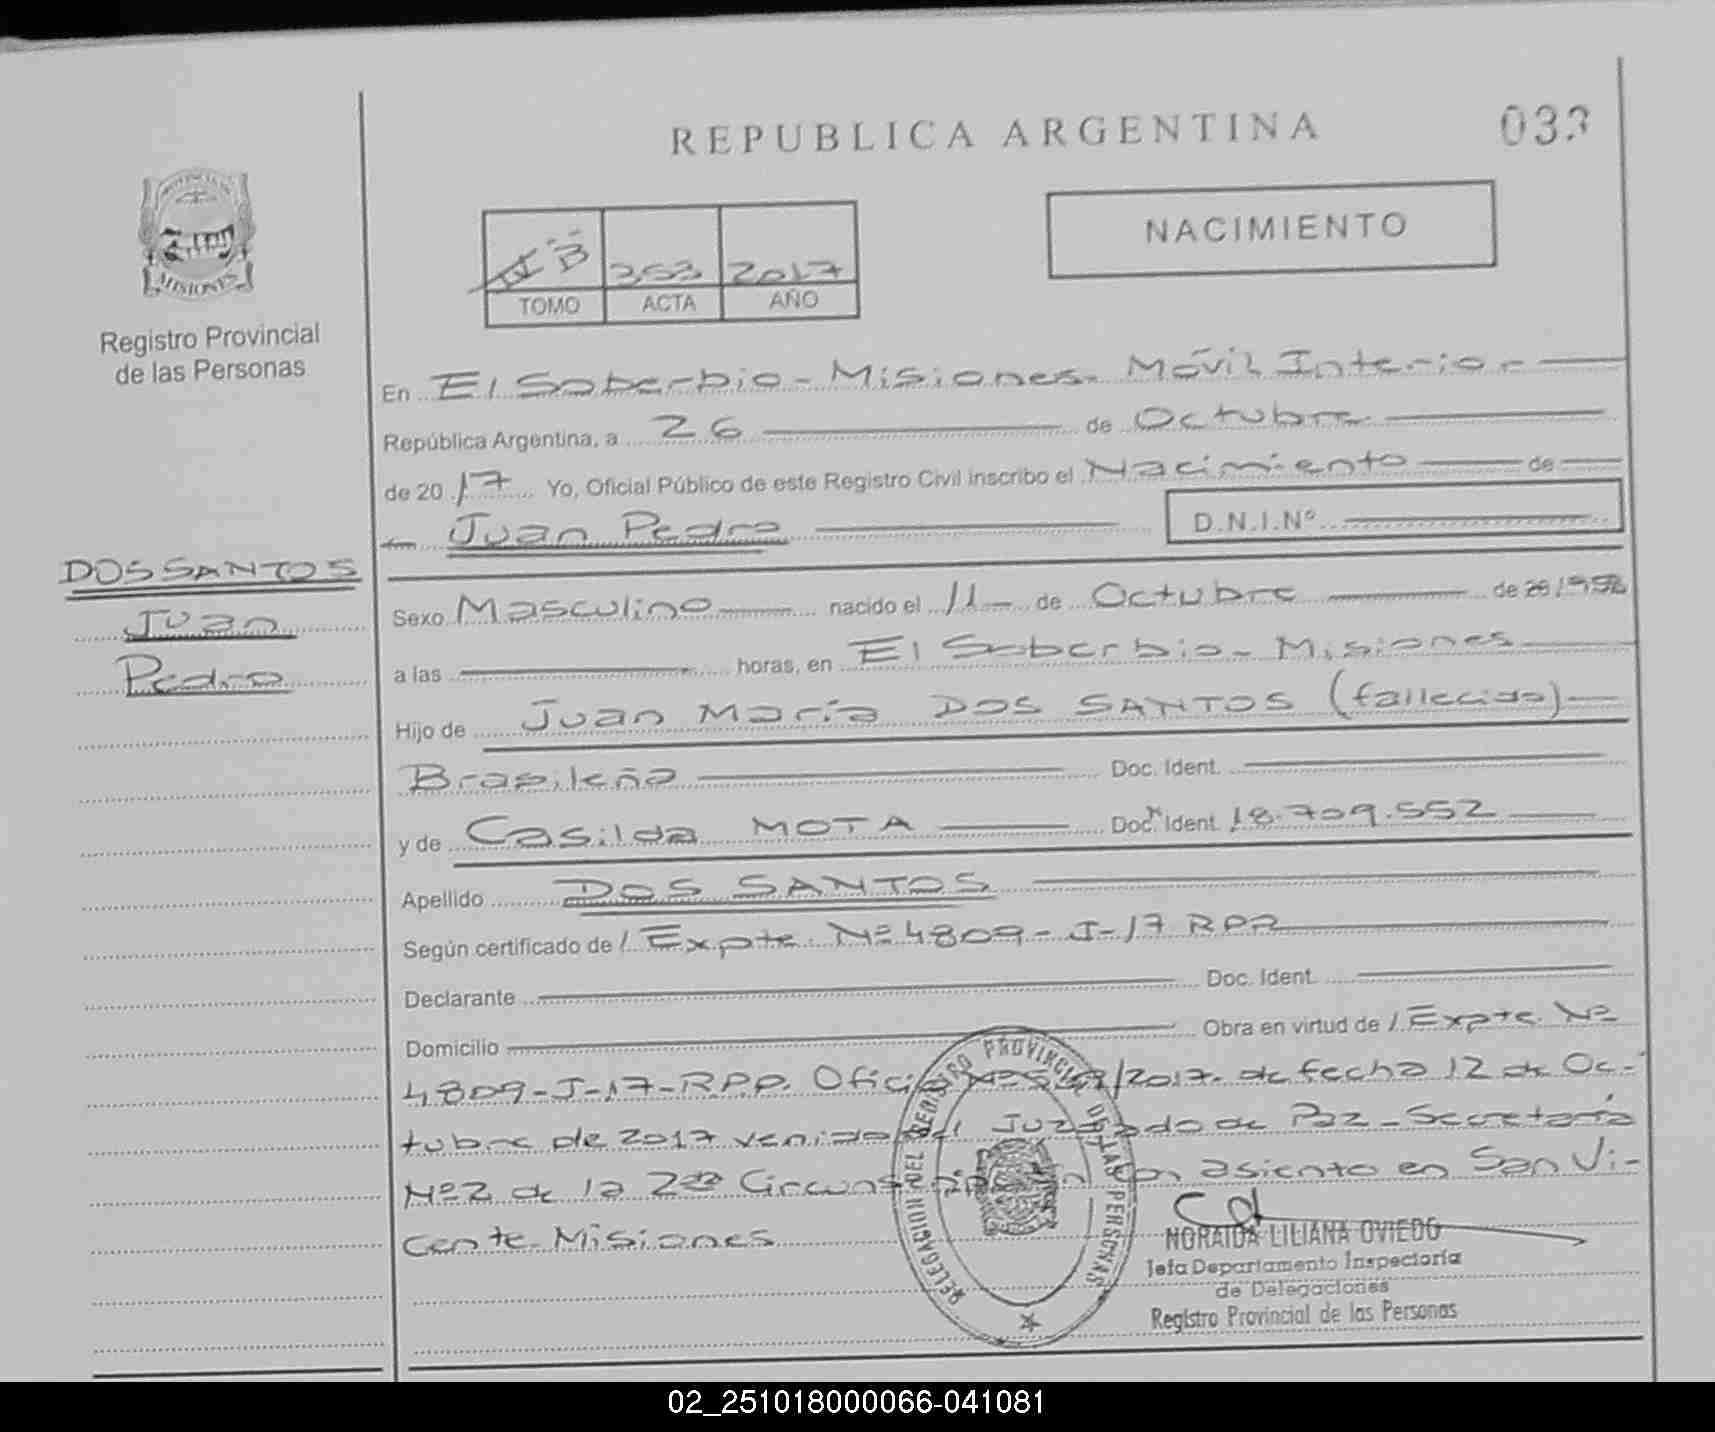 REPUBLICA ARGENTINA
033
PROVINCIA DE
MISIONES
Registro Provincial
de las Personas
II B 353 2017
TOMO ACTA AÑO
NACIMIENTO
En El Soberbio - Misiones. Móvil Interior
República Argentina, a 26 de Octubre
de 2017 Yo, Oficial Público de este Registro Civil inscribo el Nacimiento de
Juan Pedro D.N.I.Nº
DOS SANTOS
Juan
Pedro
Sexo Masculino nacido el 11 de Octubre de
a las horas, en El Soberbio - Misiones
Hijo de Juan María DOS SANTOS (fallecido)
Brasileña Doc. Ident.
y de Casilda MOTA Doc. Ident. 18.709.552
Apellido DOS SANTOS
Según certificado de / Expte. Nº 4809-J-17 RPP
Declarante Doc. Ident.
Domicilio Obra en virtud de / Expte. Nº
4809-J-17-R.P.P. Oficio /2017. de fecha 12 de Oc-
tubre de 2017 venido del Juzgado de Paz - Secretaría
Nº2 de la 2da Circunscripción con asiento en San Vi-
cente. Misiones
DELEGACION DEL REGISTRO PROVINCIAL DE LAS PERSONAS
NORAIDA LILIANA OVIEDO
Jefa Departamento Inspectoría
de Delegaciones
Registro Provincial de las Personas
02_251018000066-041081